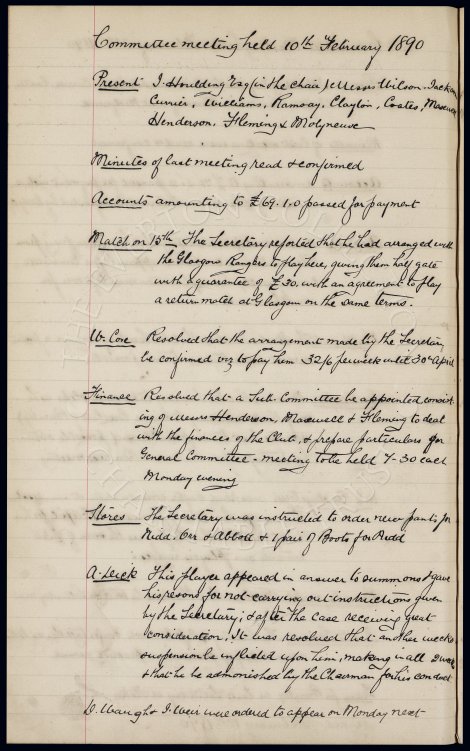 Committee meeting held 10th February 1890
Present J. Houlding Esq (in the chair) Messrs Wilson, Jackson
Currier, Williams, Ramsay, Clayton, Coates, Maxwell
Henderson, Fleming & Molyneux
Minutes of last meeting read & confirmed
Accounts amounting to £69.1.0 passed for payment
Match on 15th. The Secretary reported that he had arranged with
the Glasgow Rangers to play here, giving them half gate
with a guarantee of £30, with an agreement to play
a return match at Glasgow on the same terms.
W. Cox Resolved that the arrangement made by the Secretary
be confirmed viz to pay him 32/6 per week until 30th April
Finance Resolved that a Sub. Committee be appointed, consist-
ing of Messrs Henderson, Maxwell & Fleming to deal
with the finances of the Club, & prepare particulars for
General Committee - meeting to be held 7-30 each
Monday evening
Stores The Secretary was instructed to order new pants for
Kidd. Orr & Abbott & 1 pair of Boots for Kidd
A. Leick This player appeared in answer to summons & gave
his reasons for not carrying out instructions given
by the Secretary; & after the case receiving great
consideration, It was resolved that another weeks
suspension be inflicted upon him, making in all 2 weeks
& that he be admonished by the Chairman for his conduct
D. Waugh & J. Weir were ordered to appear on Monday next